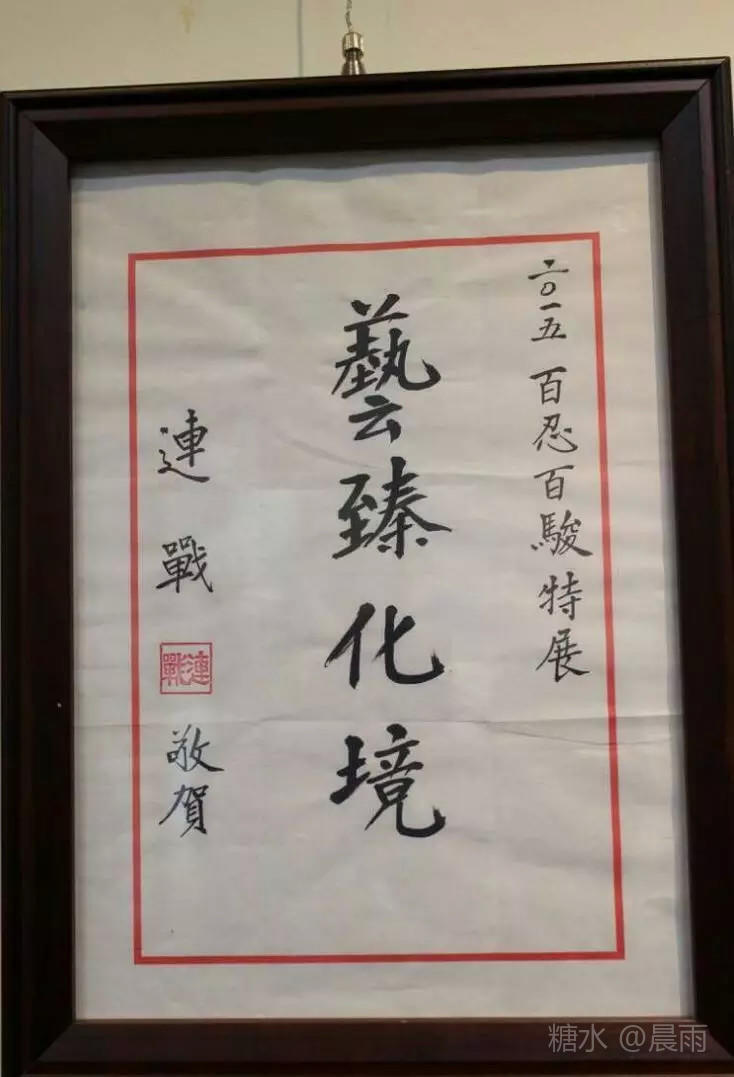 二〇一五 百忍百駿特展
藝臻化境
連戰
連戰
敬賀
糖水 @晨雨